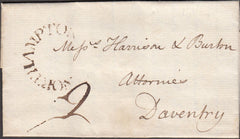 HAMPTON
Mess.rs Harrison & Burton
2
Attornies
Daventry